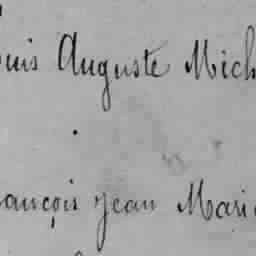 ouis Auguste Mich
rançois Jean Mari